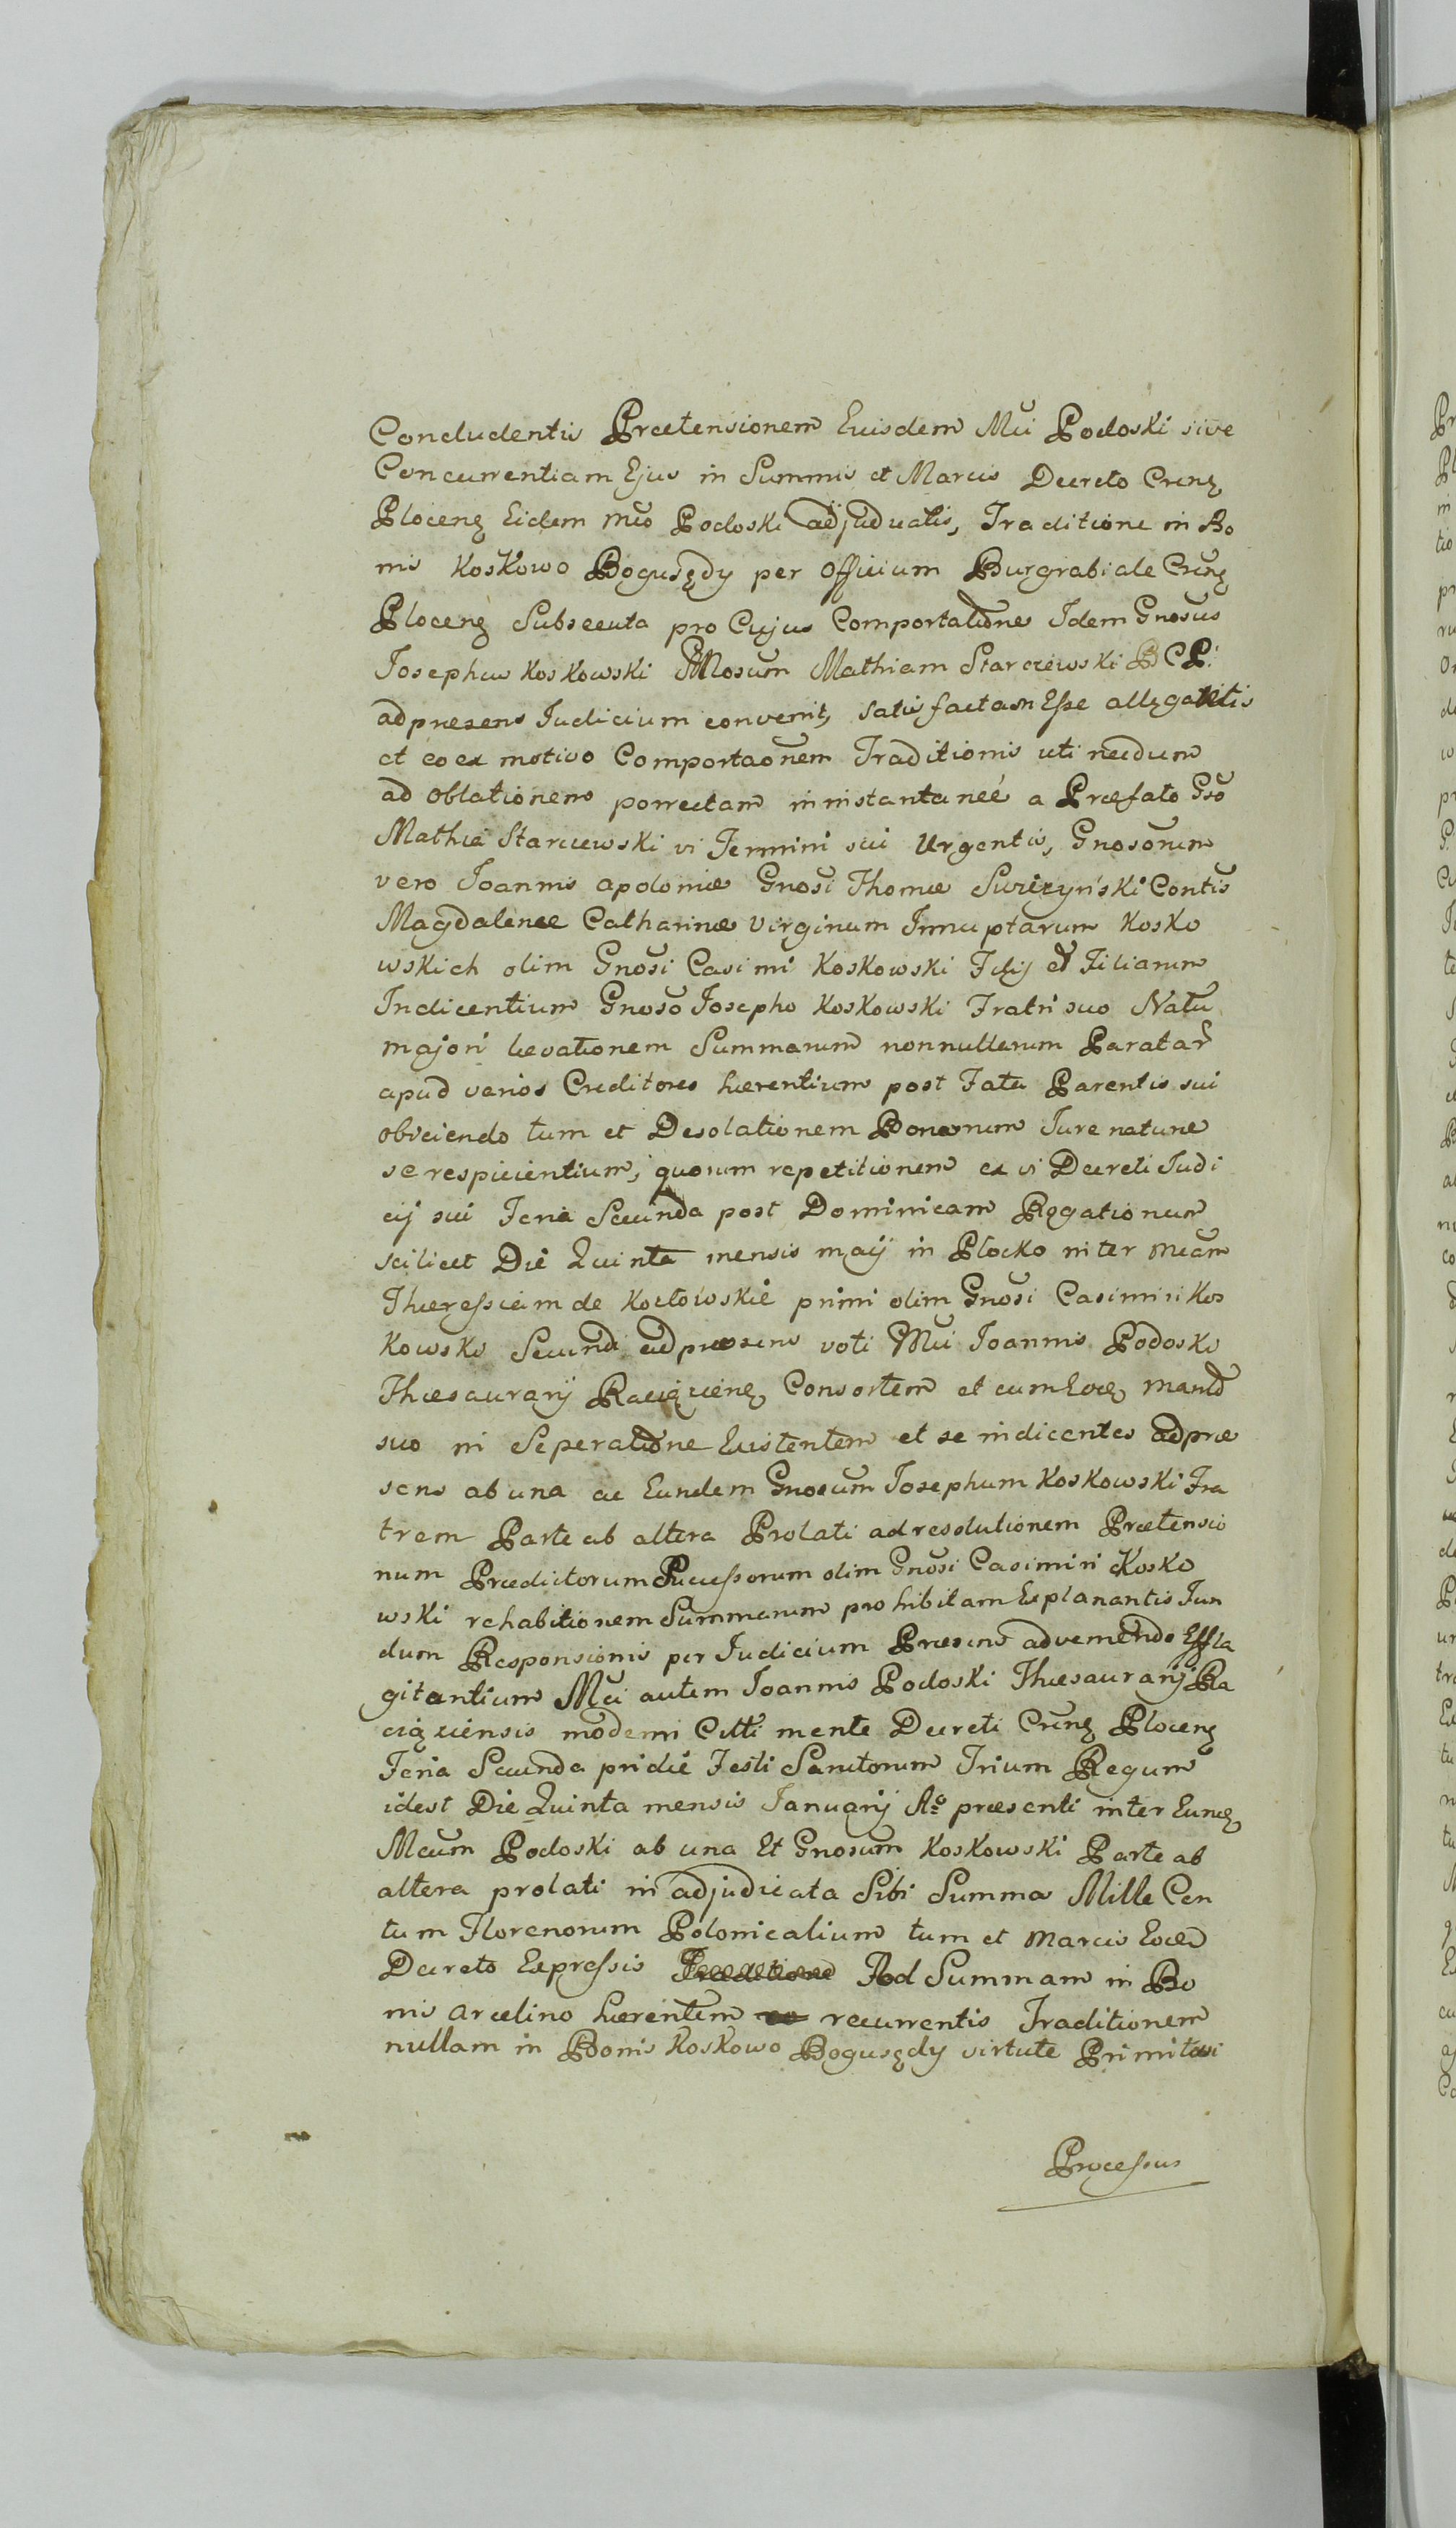 Concludentis Prætensionem Euisdem Mci Podoski sive
Concurrentiam Ejus in Summis et Marcis Decreto Crcnẜ
Plocenẜ Eidem Mco Podoski adjudicatis, Traditione in Bo
nis Koskowo Bogusędy per Officium Burgrabiale Crcnẜ
Plocenẜ Subsecuta pro Cujus Comportatione Idem Gnosus
Josephus Koskowski GMosum Mathiam Starczewski B C P:
ad præsens Judicium convenit, satisfactam Esse allegantis
et eo ex motivo Comportaonem Traditionis uti necdum
ad oblationem porrectam in instantaneé a Præfato Gso
Mathia Starczewski vi Termini sui Urgentis, Gnosorum
vero Joannis Apoloniæ Gnosi Thomæ Swiezyński Contis
Magdalenæ Catharinæ Virginum Innuptarum Kosko
wskich olim Gnosi Casimi Koskowski Filij et Filiarum
Indicentium Gnoso Josepho Koskowski Fratri suo Natu
majori levationem Summarum nonnullarum Paratar
apud varios Creditores hærentium post Fata Parentis sui
obiiciendo tum et Desolationem Bonorum Jure naturæ
se respicientium, quorum repetitionem ex vi Decreti Judi
cij sui Feria Secunda post Dominicam Rogationum
scilicet Die Quinta mensis maij in Plocko inter Mcam
Thæressiam de Kozłowskie primi olim Gnosi Casimiri Kos
kowski Secundi ad præsens voti Mci Joannis Podoski
Thæsaurarij Raciązienẜ Consortem et cum Eodẜ Marito
suo in Seperatione Existentem et se indicentes ad præ
sens ab una ac Eundem Gnosum Josephum Koskowski Fra
trem Parte ab altera Prolati ad resolutionem Prætensio
num Prædictorum Sucessorum olim Gnosi Casimiri Kosko
wski rehabitionem Summarum prohibitam Explanantis Fun
dum Responsionis per Judicium Præsens advertendo Effla
gitantium Mci autem Joannis Podoski Thæsaurarij Ra
ciąziensis moderni Citti mente Decreti Crcnẜ Plocenẜ
Feria Secunda pridie Festi Sanctorum Trium Regum
idest Die Quinta mensis Januarij Ao præsenti inter Eundẜ
Mcum Podoski ab una Et Gnosum Koskowski Parte ab
altera prolati in adjudicata Sibi Summa Mille Cen
tum Florenorum Polonicalium tum et Marcis Eodem
Decreto Expressis Ad Summam in Bo
nis Arcelino hærentem recurrentis Traditionem
nullam in Bonis Koskowo Bogusędy virtute Primitivi
Processus